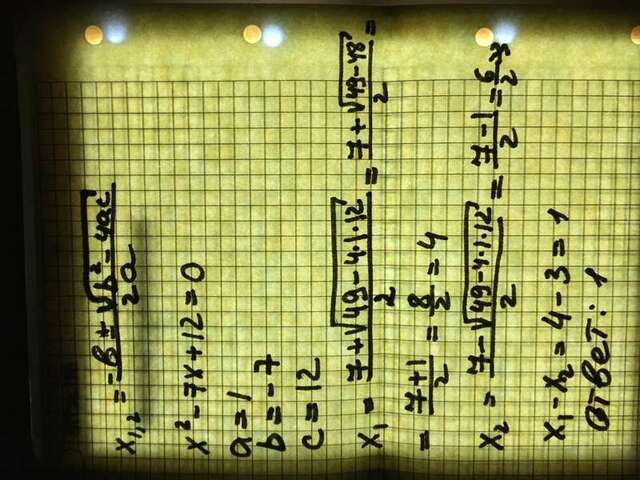 x₁,₂ = (-b ± √(b² - 4ac)) / 2a
x² - 7x + 12 = 0
a = 1
b = -7
c = 12
x₁ = (7 + √(49 - 4·1·12)) / 2 = (7 + √(49 - 48)) / 2 =
= (7 + 1) / 2 = 8/2 = 4
x₂ = (7 - √(49 - 4·1·12)) / 2 = (7 - 1) / 2 = 6/2 = 3
x₁ - x₂ = 4 - 3 = 1
ответ: 1